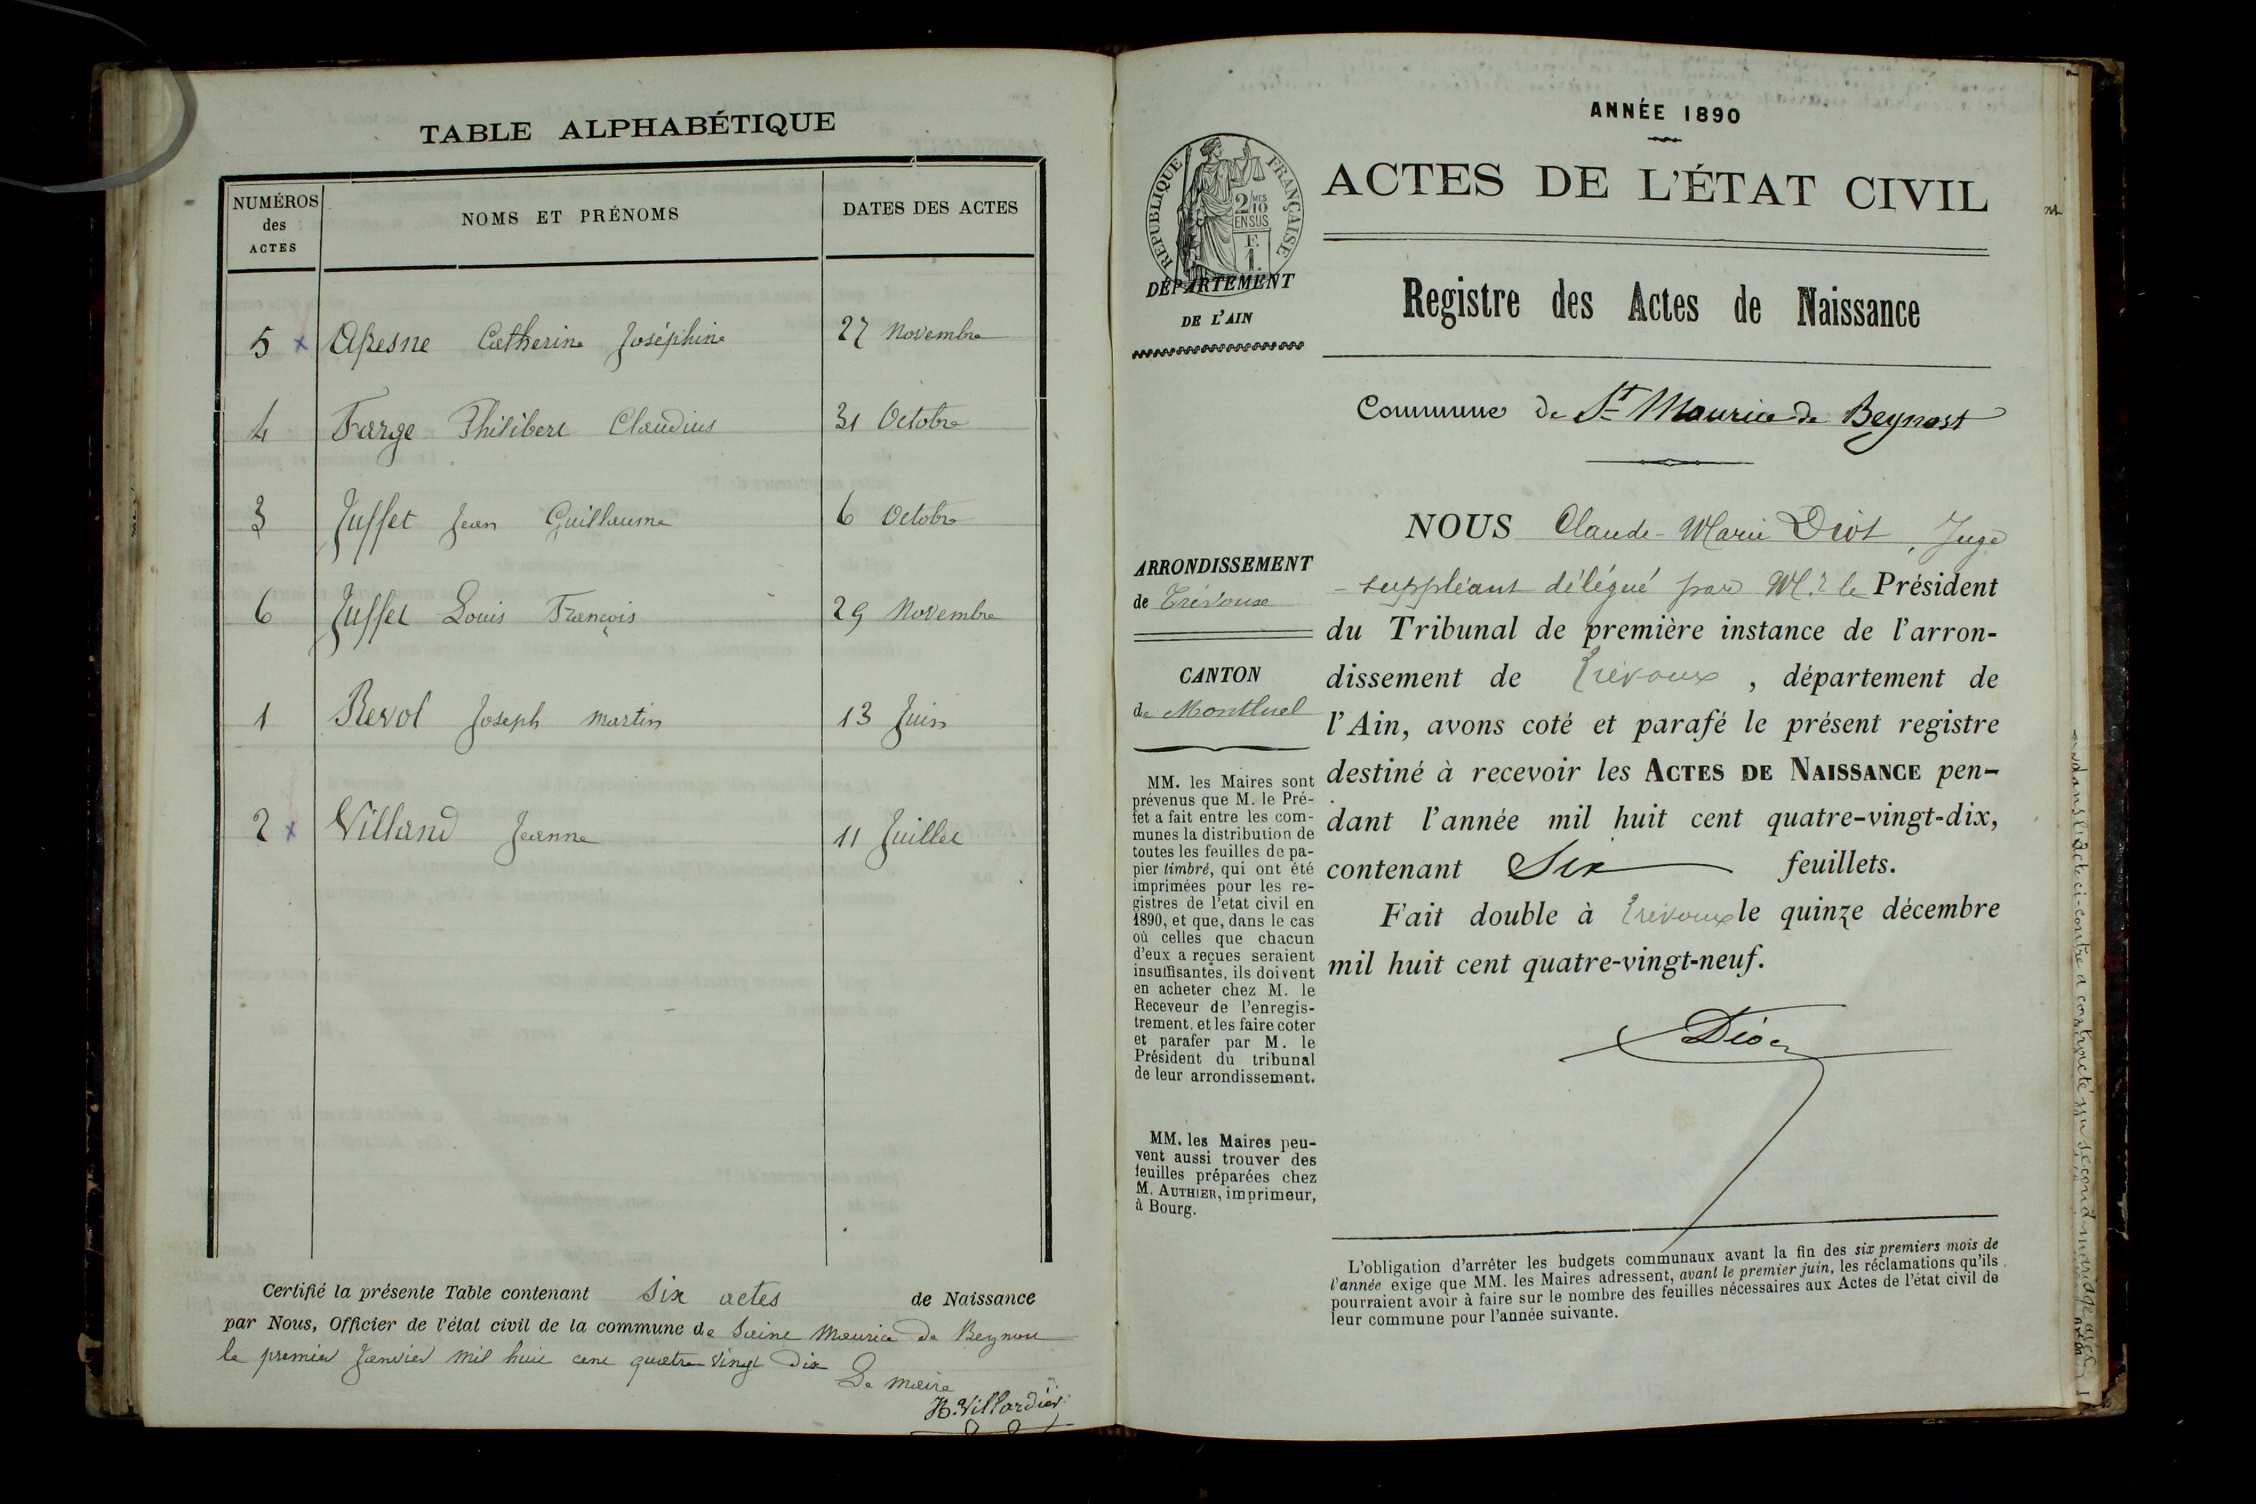 TABLE ALPHABÉTIQUE
NUMÉROS
des
ACTES
NOMS ET PRÉNOMS
DATES DES ACTES
5 x Catherine Joséphine 27 Novembre
4 Farge Philibert Claudius 31 Octobre
3 Juffet Jean Guillaume 6 Octobre
6 Juffet Louis François 29 Novembre
1 Revol Joseph Martin 13 Juin
2 x Villand Jeanne 11 Juillet
Certifié la présente Table contenant six actes de Naissance
par Nous, Officier de l'état civil de la commune de Saint Maurice de Beynost
le premier Janvier mil huit cent quatre vingt dix
Le maire
ANNÉE 1890
ACTES DE L'ÉTAT CIVIL
RÉPUBLIQUE FRANÇAISE
2/10 MES
EN SUS
F.
1.
DÉPARTEMENT
DE L'AIN
Registre des Actes de Naissance
Commune de St Maurice de Beynost
ARRONDISSEMENT
de Trévoux
CANTON
de Montluel
MM. les Maires sont
prévenus que M. le Pré-
fet a fait entre les com-
munes la distribution de
toutes les feuilles de pa-
pier timbré, qui ont été
imprimées pour les re-
gistres de l'etat civil en
1890, et que, dans le cas
où celles que chacun
d'eux a reçues seraient
insuffisantes, ils doivent
en acheter chez M. le
Receveur de l'enregis-
trement, et les faire coter
et parafer par M. le
Président du tribunal
de leur arrondissement.
MM. les Maires peu-
vent aussi trouver des
feuilles préparées chez
M. AUTHIER, imprimeur,
à Bourg.
NOUS Claude-Marie Diot, Juge
suppléant délégué par Mr le Président
du Tribunal de première instance de l'arron-
dissement de Trévoux, département de
l'Ain, avons coté et parafé le présent registre
destiné à recevoir les ACTES DE NAISSANCE pen-
dant l'année mil huit cent quatre-vingt-dix,
contenant Six feuillets.
Fait double à Trévoux le quinze décembre
mil huit cent quatre-vingt-neuf.
Diot
L'obligation d'arrêter les budgets communaux avant la fin des six premiers mois de
l'année exige que MM. les Maires adressent, avant le premier juin, les réclamations qu'ils
pourraient avoir à faire sur le nombre des feuilles nécessaires aux Actes de l'état civil de
leur commune pour l'année suivante.
dans l'acte ci-contre a contracté un second mariage